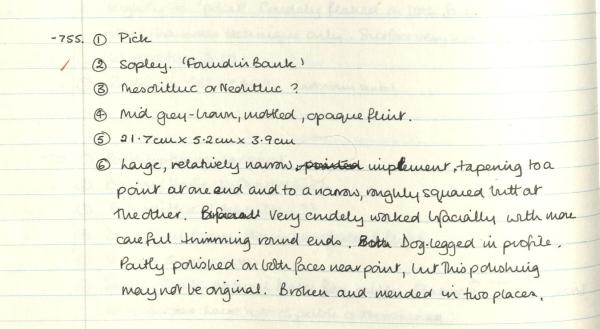 -755. ① Pick
② Sopley. 'Found in Bank'
③ Mesolithic or Neolithic ?
④ Mid grey-brown, mottled, opaque flint.
⑤ 21.7cm x 5.2cm x 3.9cm
⑥ Large, relatively narrow, pointed implement, tapening to a
point at one end and to a narrow, roughly squared butt at
the other. Bifacial Very crudely worked bifacially with more
careful trimming round ends. Both Dog-legged in profile.
Partly polished on both faces near point, but this polishing
may not be original. Broken and mended in two places.